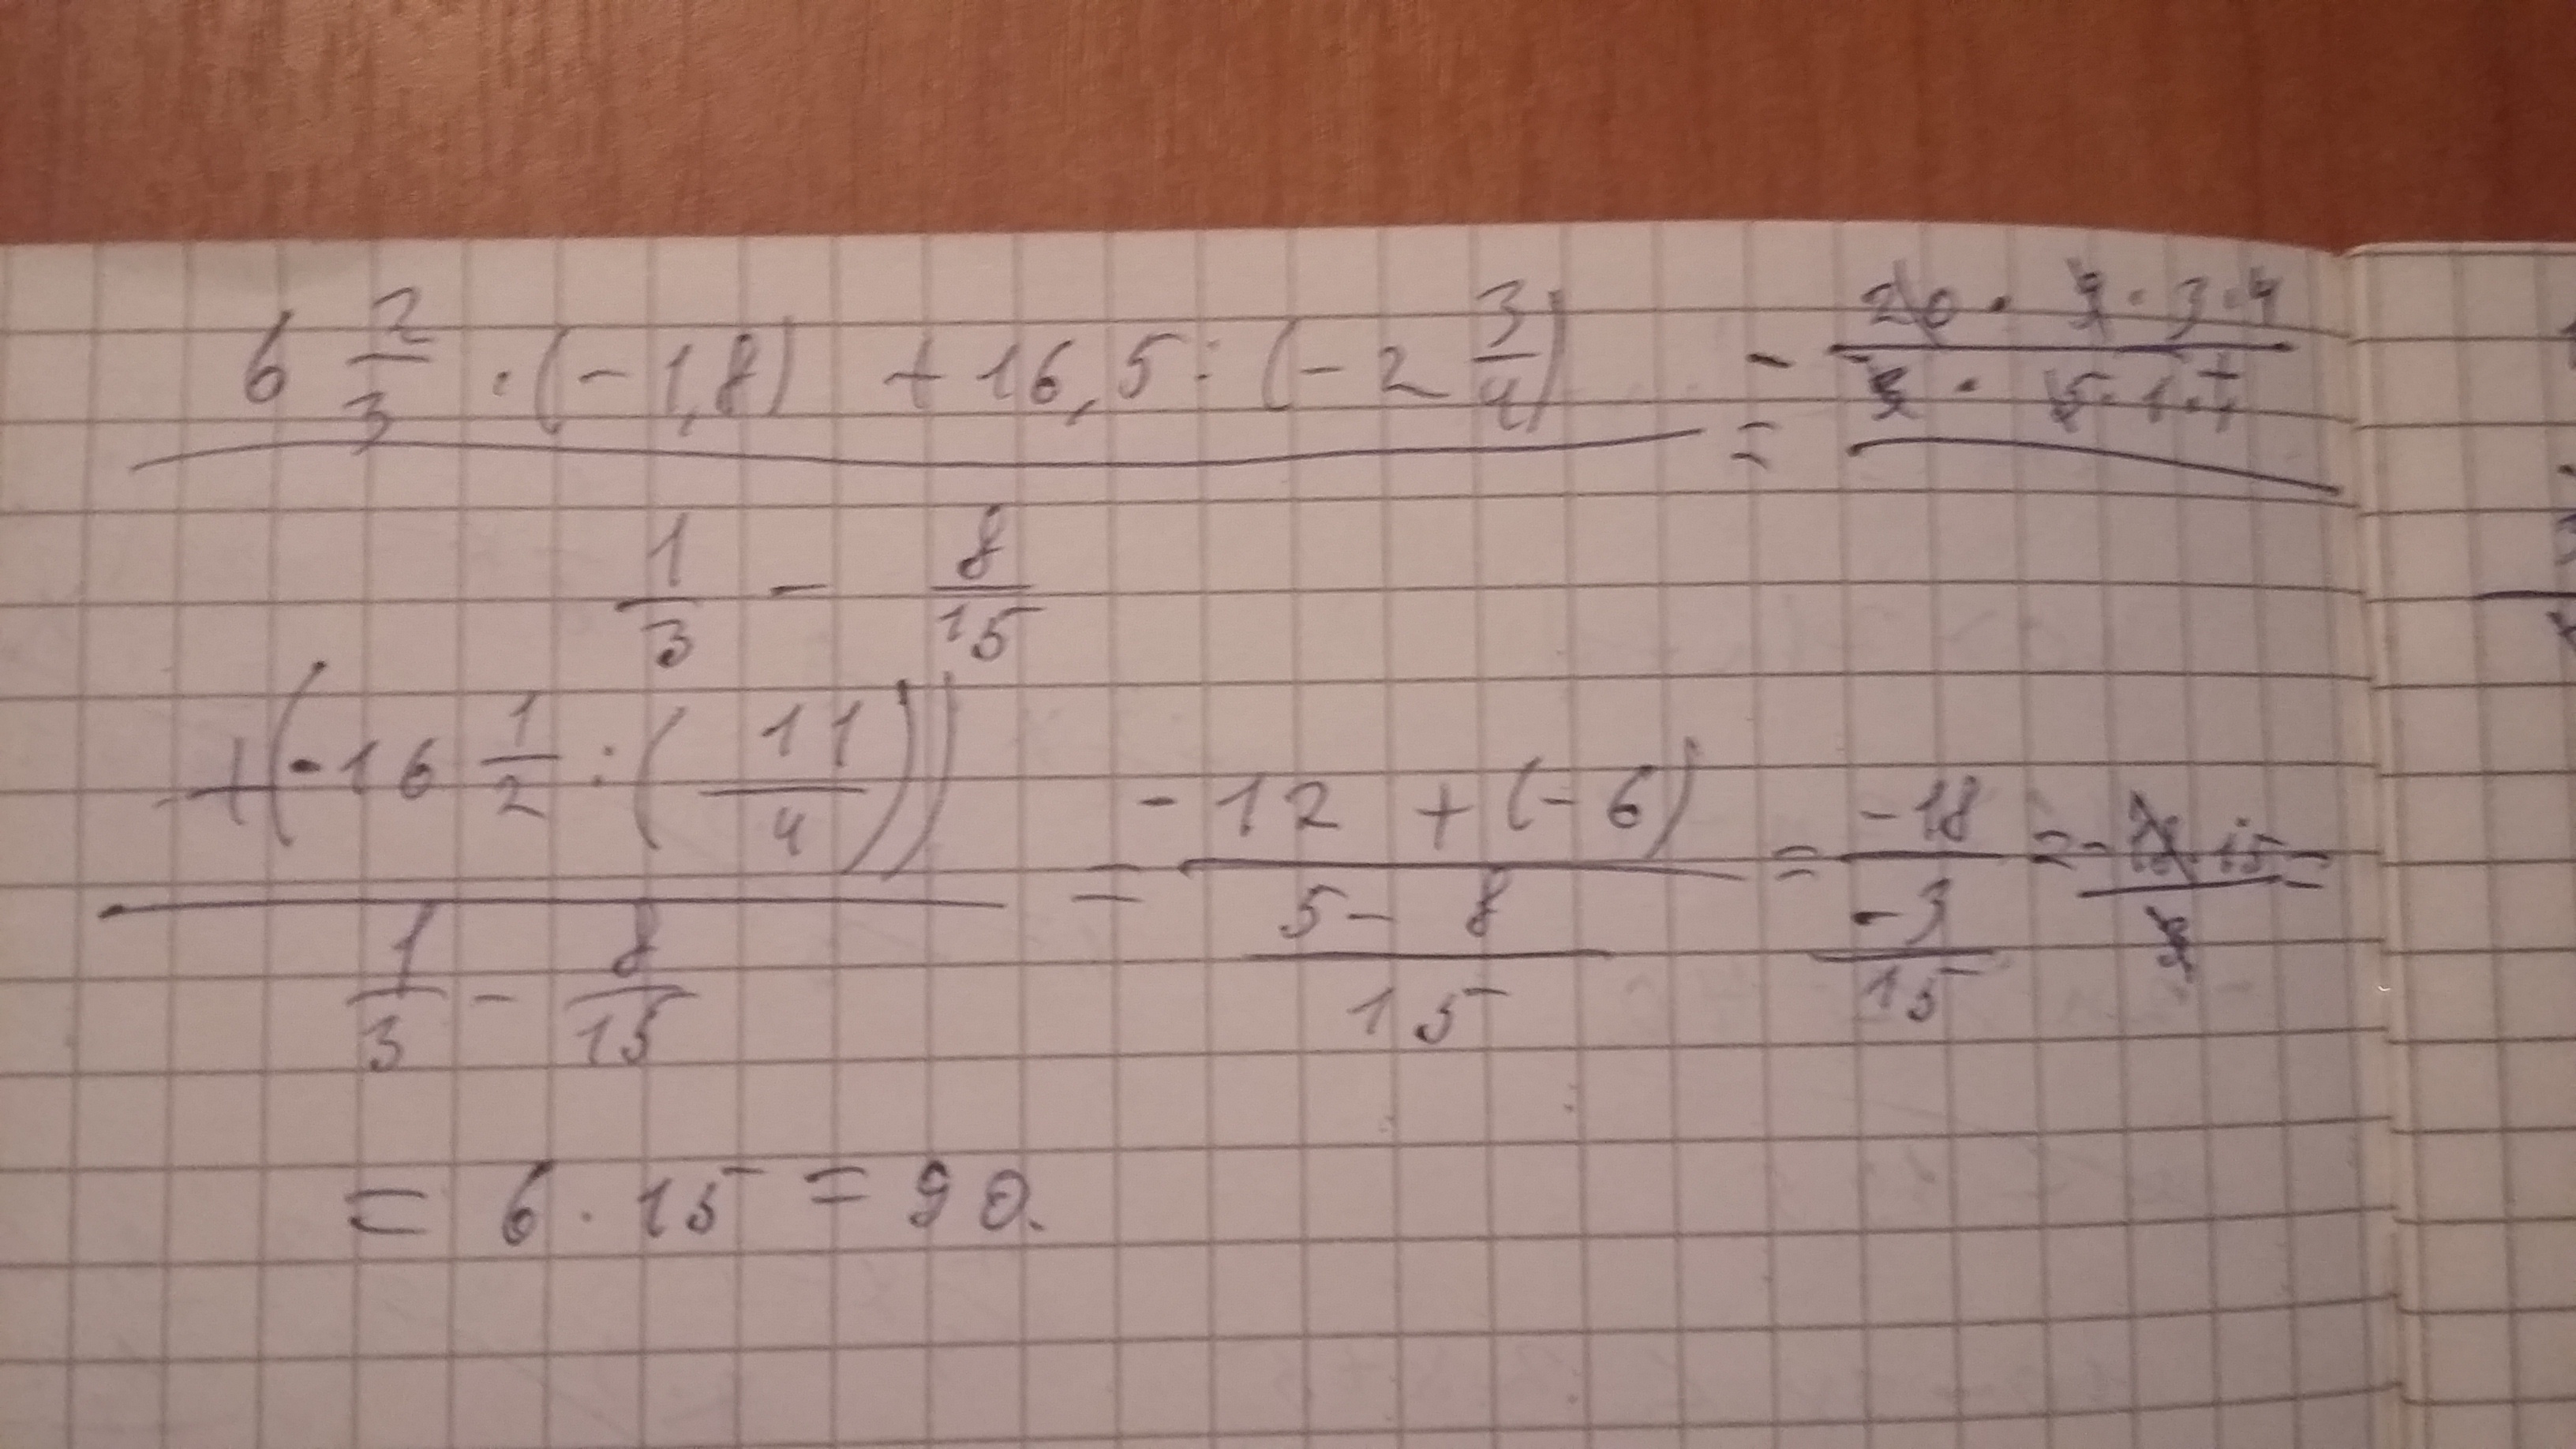 6 2/3 · (-1,8) + 16,5 : (-2 3/4) / (1/3 - 8/15) = - 20 · 9 · 3 · 4 / 3 · 5 · 1 · 1
+(-16 1/2 : (11/4)) / (1/3 - 8/15) = -12 + (-6) / (5 - 8 / 15) = -18 / (-3 / 15) = - 18 · 15 / 3 =
= 6 · 15 = 90.